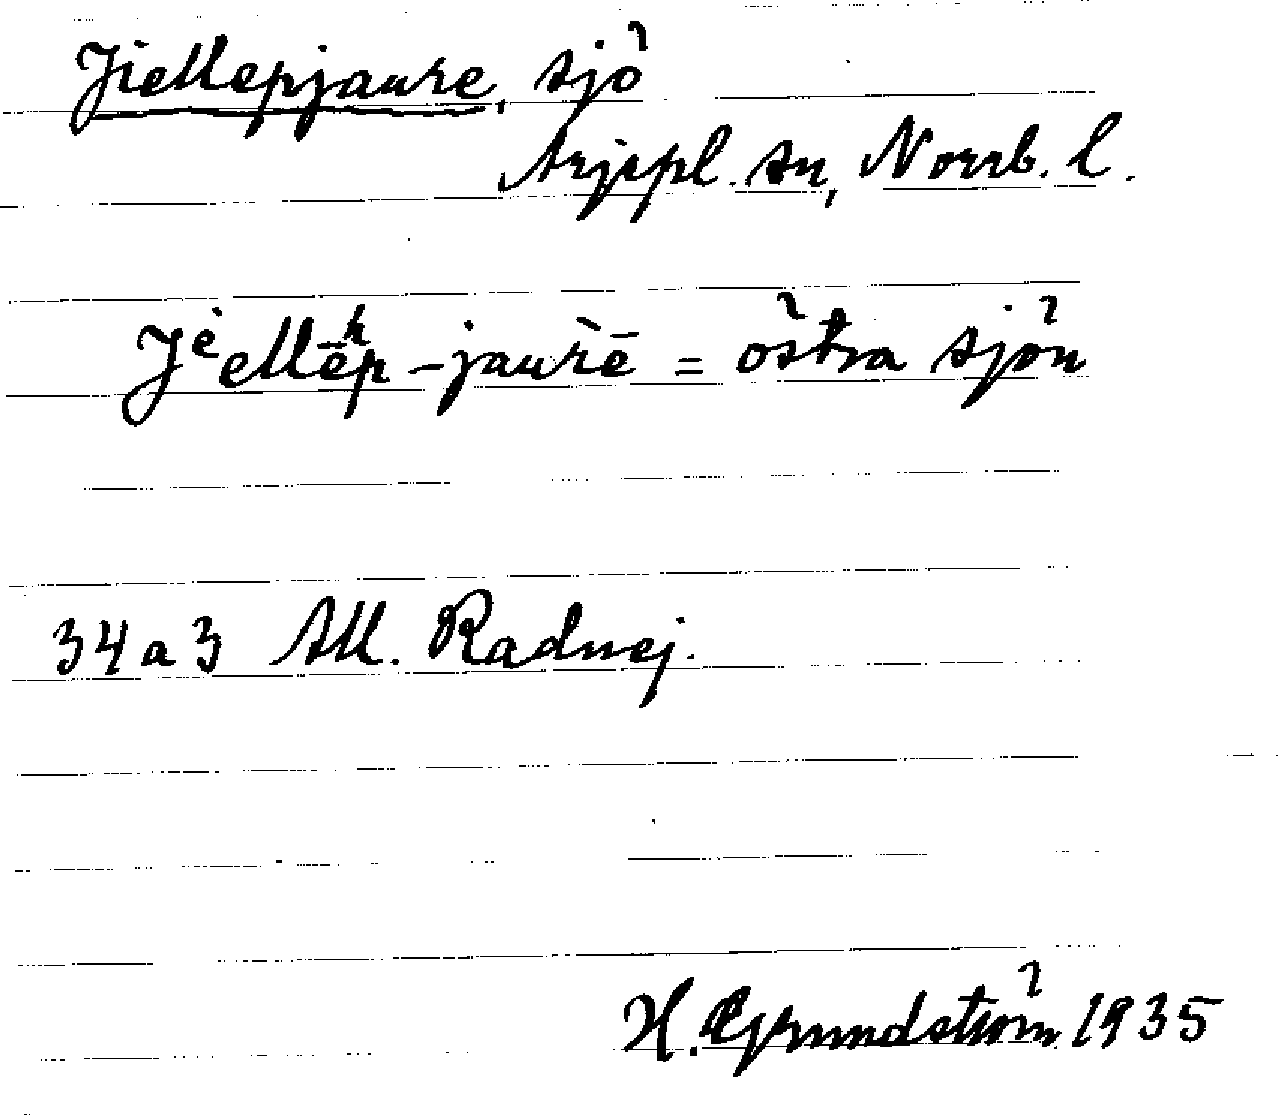 Jiellepjaure, sjö
Arjepl. sn, Norrb. l.
Jᵉellēʰp-jaurē = östra sjön
34 a 3 All. Radnej.
H. Grundström 1935